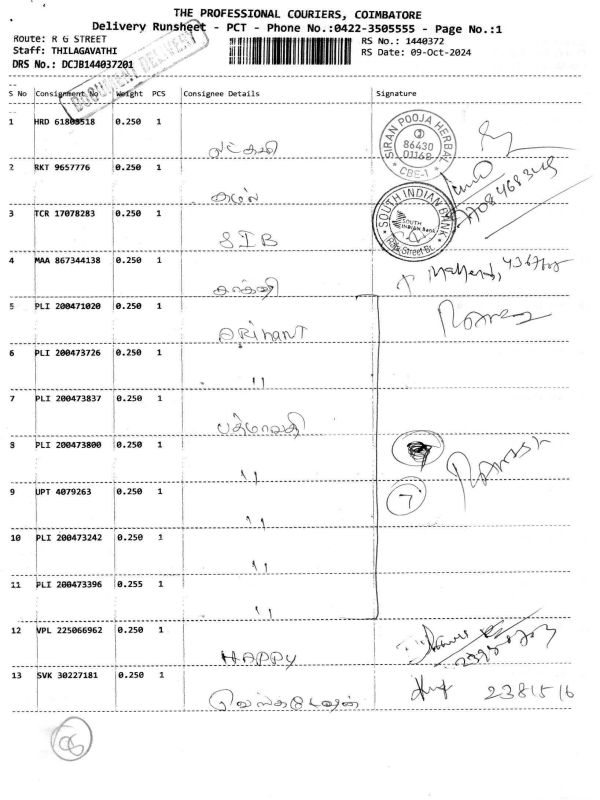 THE PROFESSIONAL COURIERS, COIMBATORE
Delivery Runsheet - PCT - Phone No.:0422-3505555 - Page No.:1
Route: R G STREET RS No.: 1440372
Staff: THILAGAVATHI RS Date: 09-Oct-2024
DRS No.: DCJB144037201
DOCUMENT DELIVERY
S No Consignment No Weight PCS Consignee Details Signature
1 HRD 61803518 0.250 1
SIRAN POOJA HERBAL
86430
01168
CBE-1
2 RKT 9657776 0.250 1
கமல்
3 TCR 17078283 0.250 1
SIB
SOUTH INDIAN BANK
SOUTH INDIAN Bank
4 MAA 867344138 0.250 1
5 PLI 200471020 0.250 1
ARihanT Ramesh
6 PLI 200473726 0.250 1
"
7 PLI 200473837 0.250 1
பத்மாவதி
8 PLI 200473800 0.250 1
" Ramesh
9 UPT 4079263 0.250 1
" 7
10 PLI 200473242 0.250 1
"
11 PLI 200473396 0.255 1
"
12 VPL 225066962 0.250 1
HAPPY
13 SVK 30227181 0.250 1
2381516